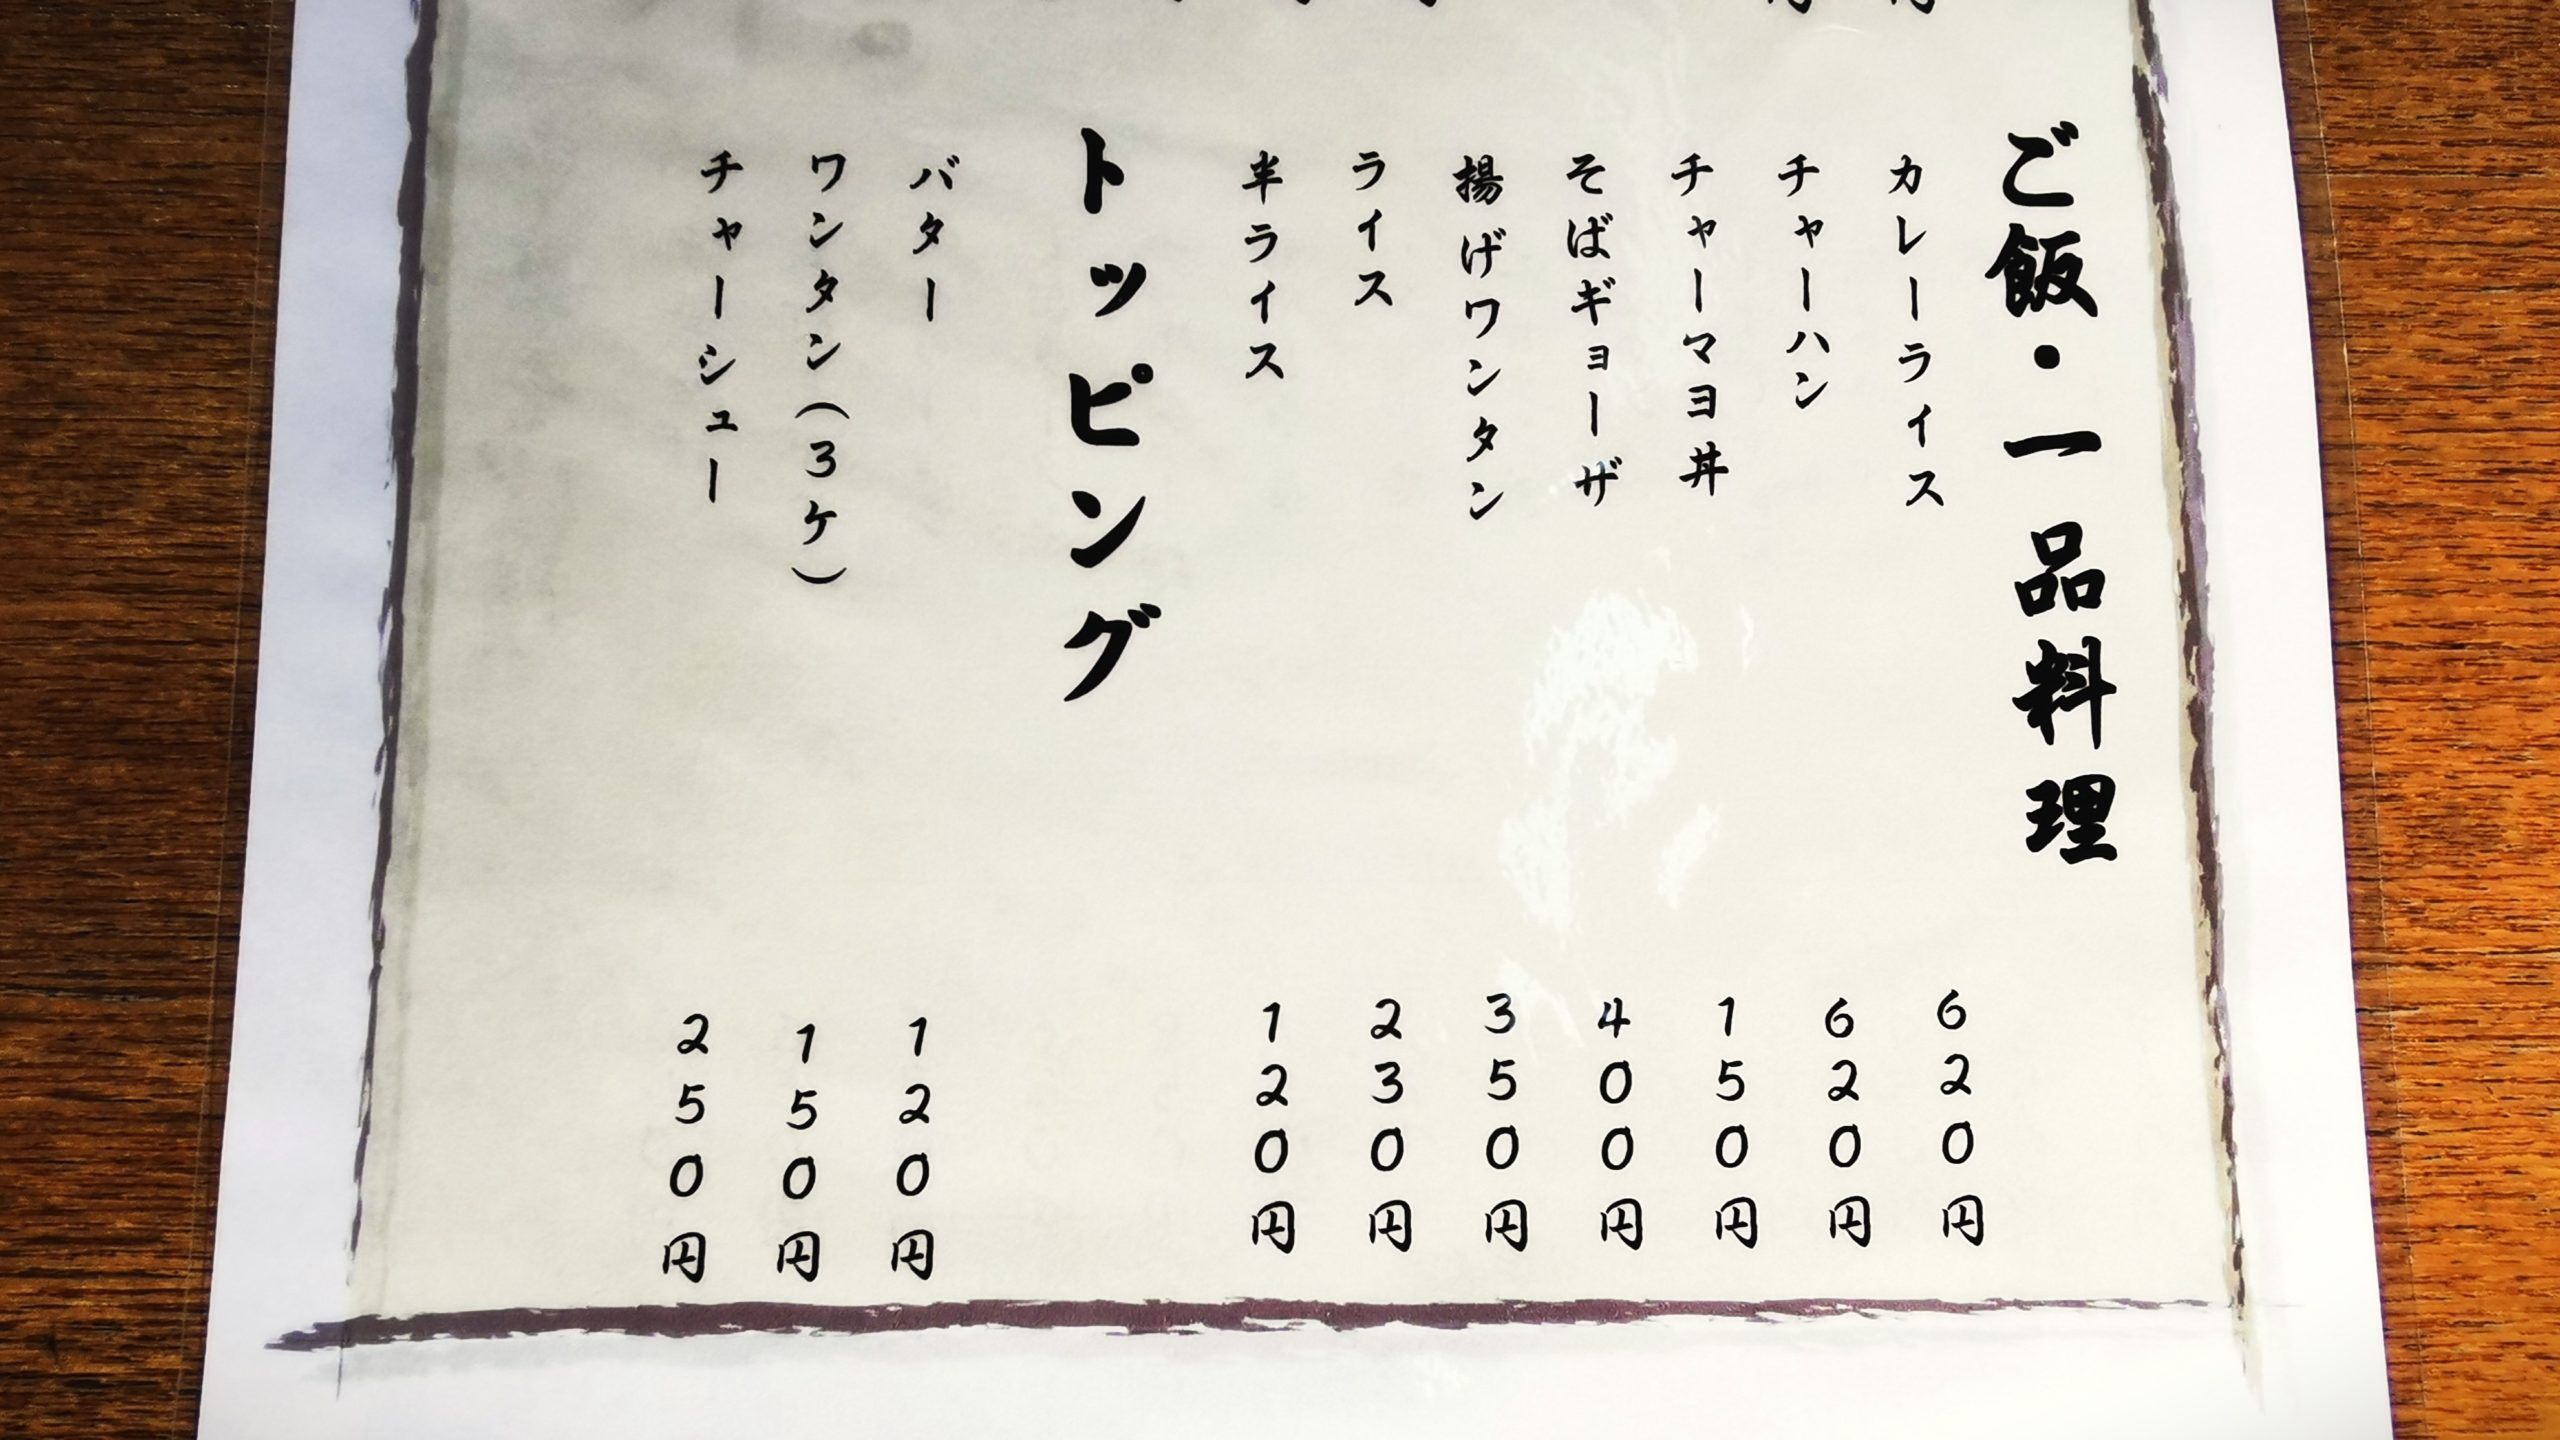 ご飯・一品料理
カレーライス 620円
チャーハン 620円
チャーマヨ丼 150円
そばギョーザ 400円
揚げワンタン 350円
ライス 230円
半ライス 120円
トッピング
バター 120円
ワンタン(3ケ) 150円
チャーシュー 250円